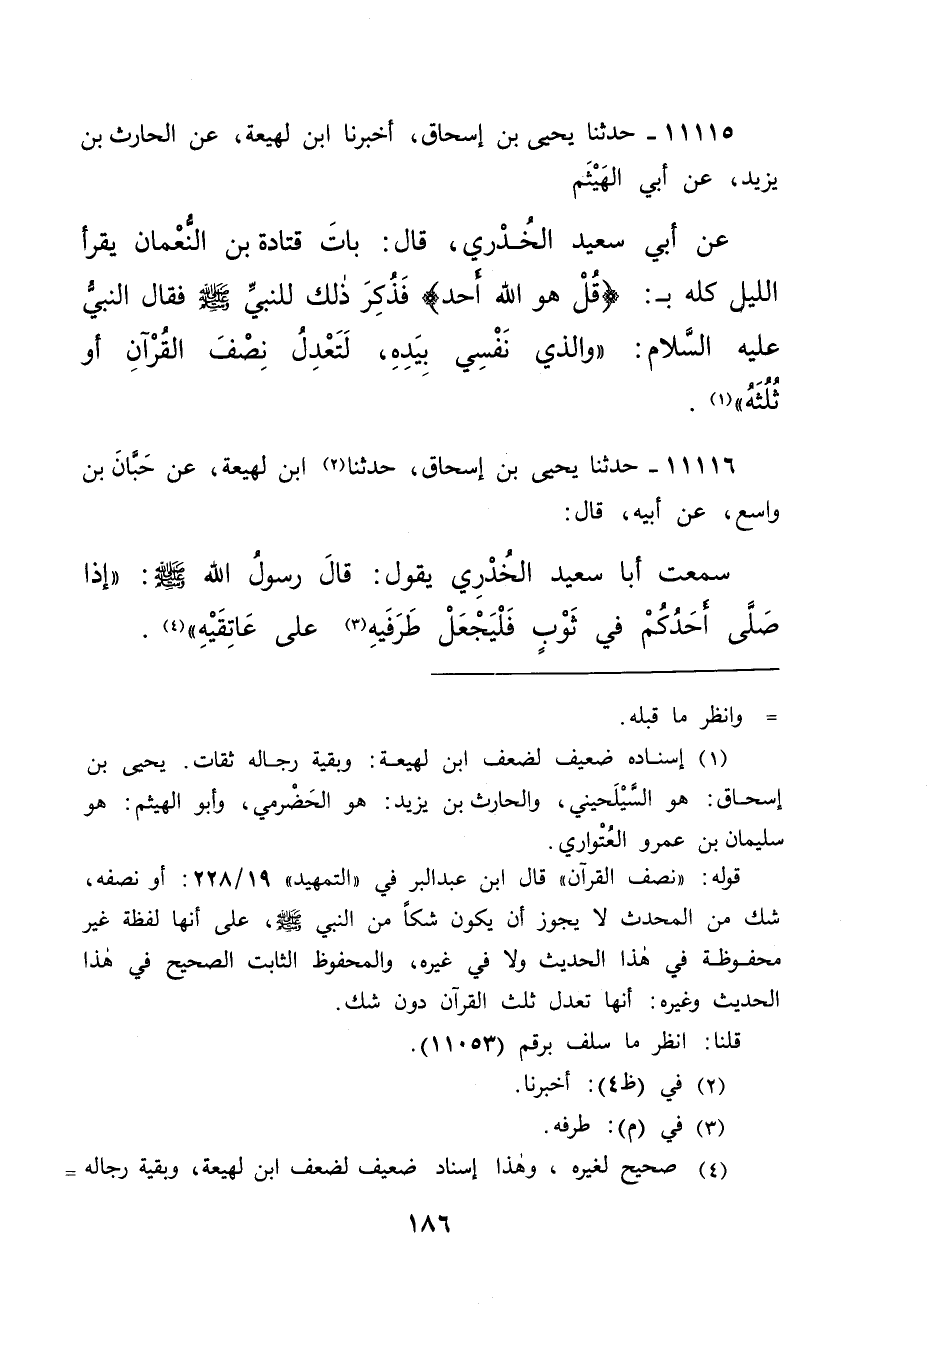 ١١١١٥ - حدثنا يحيى بن إسحاق، أخبرنا ابن لهيعة، عن الحارث بن
يزيد، عن أبي الهَيْثَم
عن أبي سعيد الخُدْري، قال: باتَ قتادة بن النُّعْمان يقرأ
الليل كله بـ: ﴿قُلْ هو الله أَحد﴾ فَذُكِرَ ذٰلك للنبيِّ ﷺ فقال النبيُّ
عليه السَّلام: «والذي نَفْسِي بِيَدِهِ، لَتَعْدِلُ نِصْفَ القُرْآنِ أو
ثُلُثَهُ»(١) .
١١١١٦ - حدثنا يحيى بن إسحاق، حدثنا(٢) ابن لهيعة، عن حَبَّانَ بن
واسع، عن أبيه، قال:
سمعت أبا سعيد الخُدْرِي يقول: قالَ رسولُ الله ﷺ: «إذا
صَلَّى أَحَدُكُمْ في ثَوْبٍ فَلْيَجْعَلْ طَرَفَيهِ(٣) على عَاتِقَيْهِ»(٤) .
= وانظر ما قبله.
(١) إسناده ضعيف لضعف ابن لهيعة: وبقية رجاله ثقات. يحيى بن
إسحاق: هو السَّيْلَحيني، والحارث بن يزيد: هو الحَضْرمي، وأبو الهيثم: هو
سليمان بن عمرو العُتْواري.
قوله: «نصف القرآن» قال ابن عبدالبر في «التمهيد» ٢٢٨/١٩: أو نصفه،
شك من المحدث لا يجوز أن يكون شكاً من النبي ﷺ، على أنها لفظة غير
محفوظة في هٰذا الحديث ولا في غيره، والمحفوظ الثابت الصحيح في هٰذا
الحديث وغيره: أنها تعدل ثلث القرآن دون شك.
قلنا: انظر ما سلف برقم (١١٠٥٣).
(٢) في (ظ٤): أخبرنا.
(٣) في (م): طرفه.
(٤) صحيح لغيره ، وهٰذا إسناد ضعيف لضعف ابن لهيعة، وبقية رجاله =
١٨٦